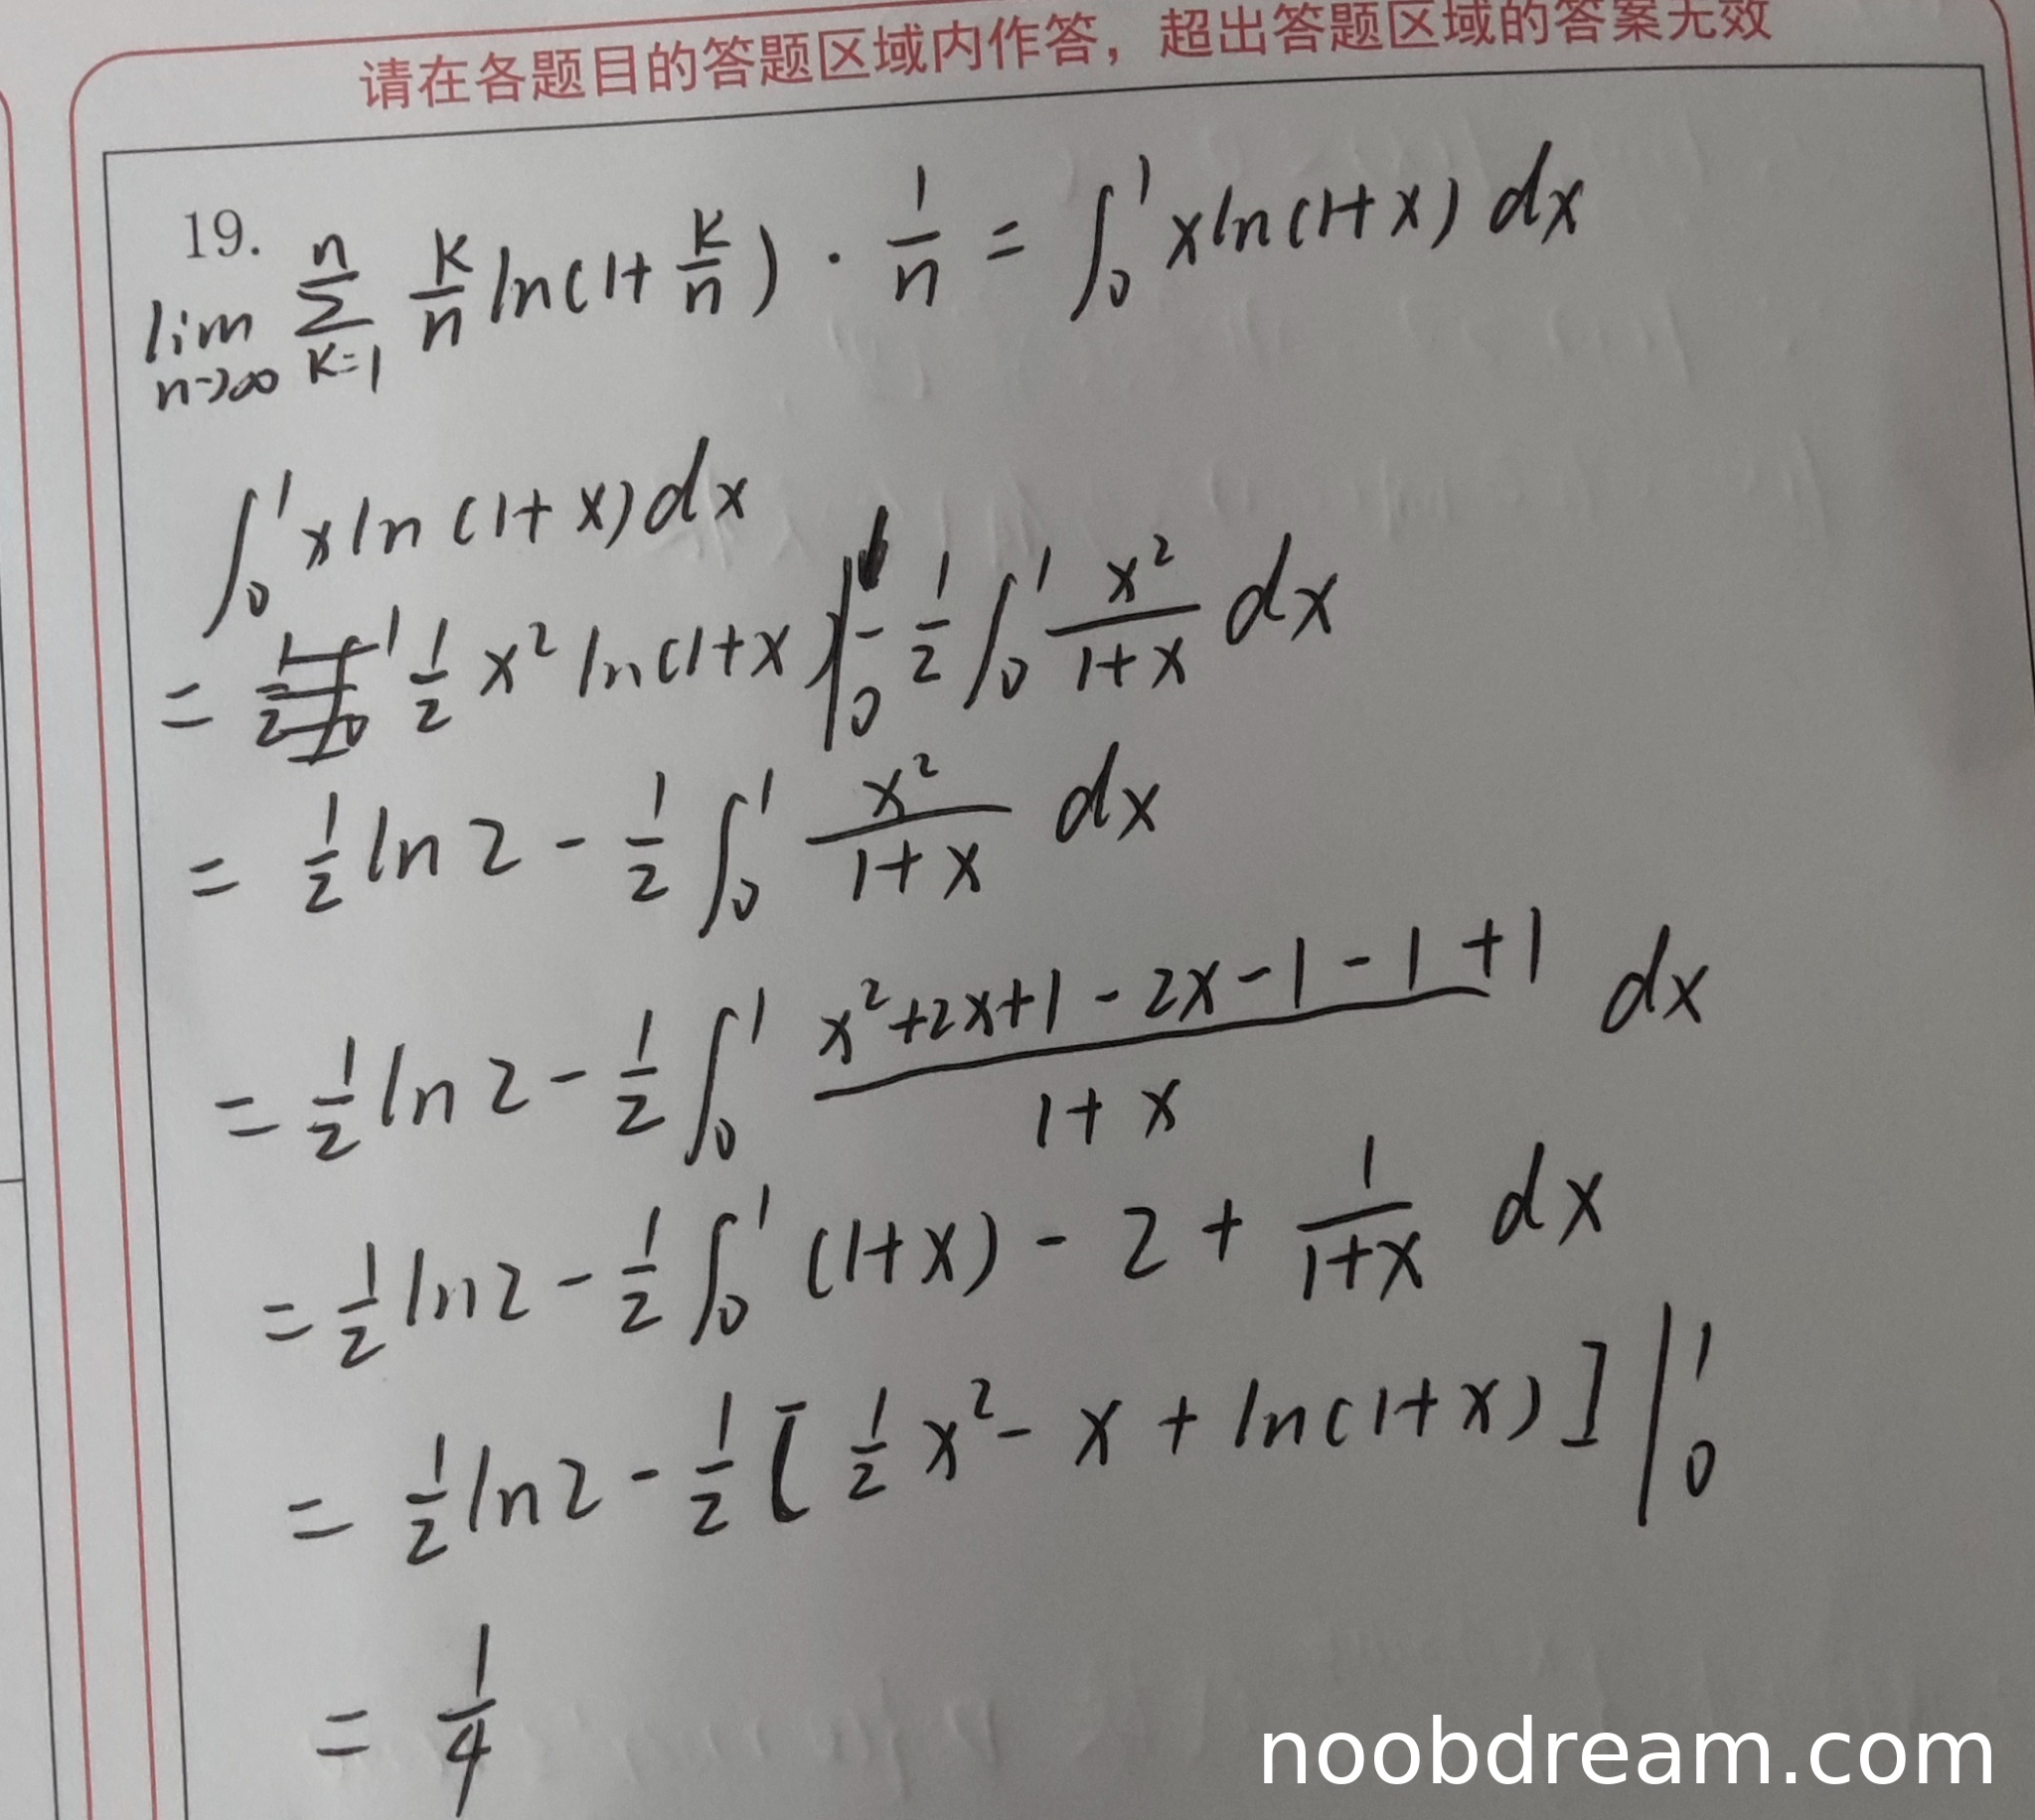 请在各题目的答题区域内作答，超出答题区域的答案无效
19.
lim_{n→∞} Σ_{k=1}^{n} k/n ln(1+k/n) · 1/n = ∫₀¹ xln(1+x) dx
∫₀¹ xln(1+x)dx
= 1/2 x² ln(1+x)|₀¹ - 1/2 ∫₀¹ x²/(1+x) dx
= 1/2 ln2 - 1/2 ∫₀¹ x²/(1+x) dx
= 1/2 ln2 - 1/2 ∫₀¹ (x²+2x+1-2x-1-1+1)/(1+x) dx
= 1/2 ln2 - 1/2 ∫₀¹ (1+x) - 2 + 1/(1+x) dx
= 1/2 ln2 - 1/2 [1/2 x² - x + ln(1+x)]|₀¹
= 1/4
noobdream.com